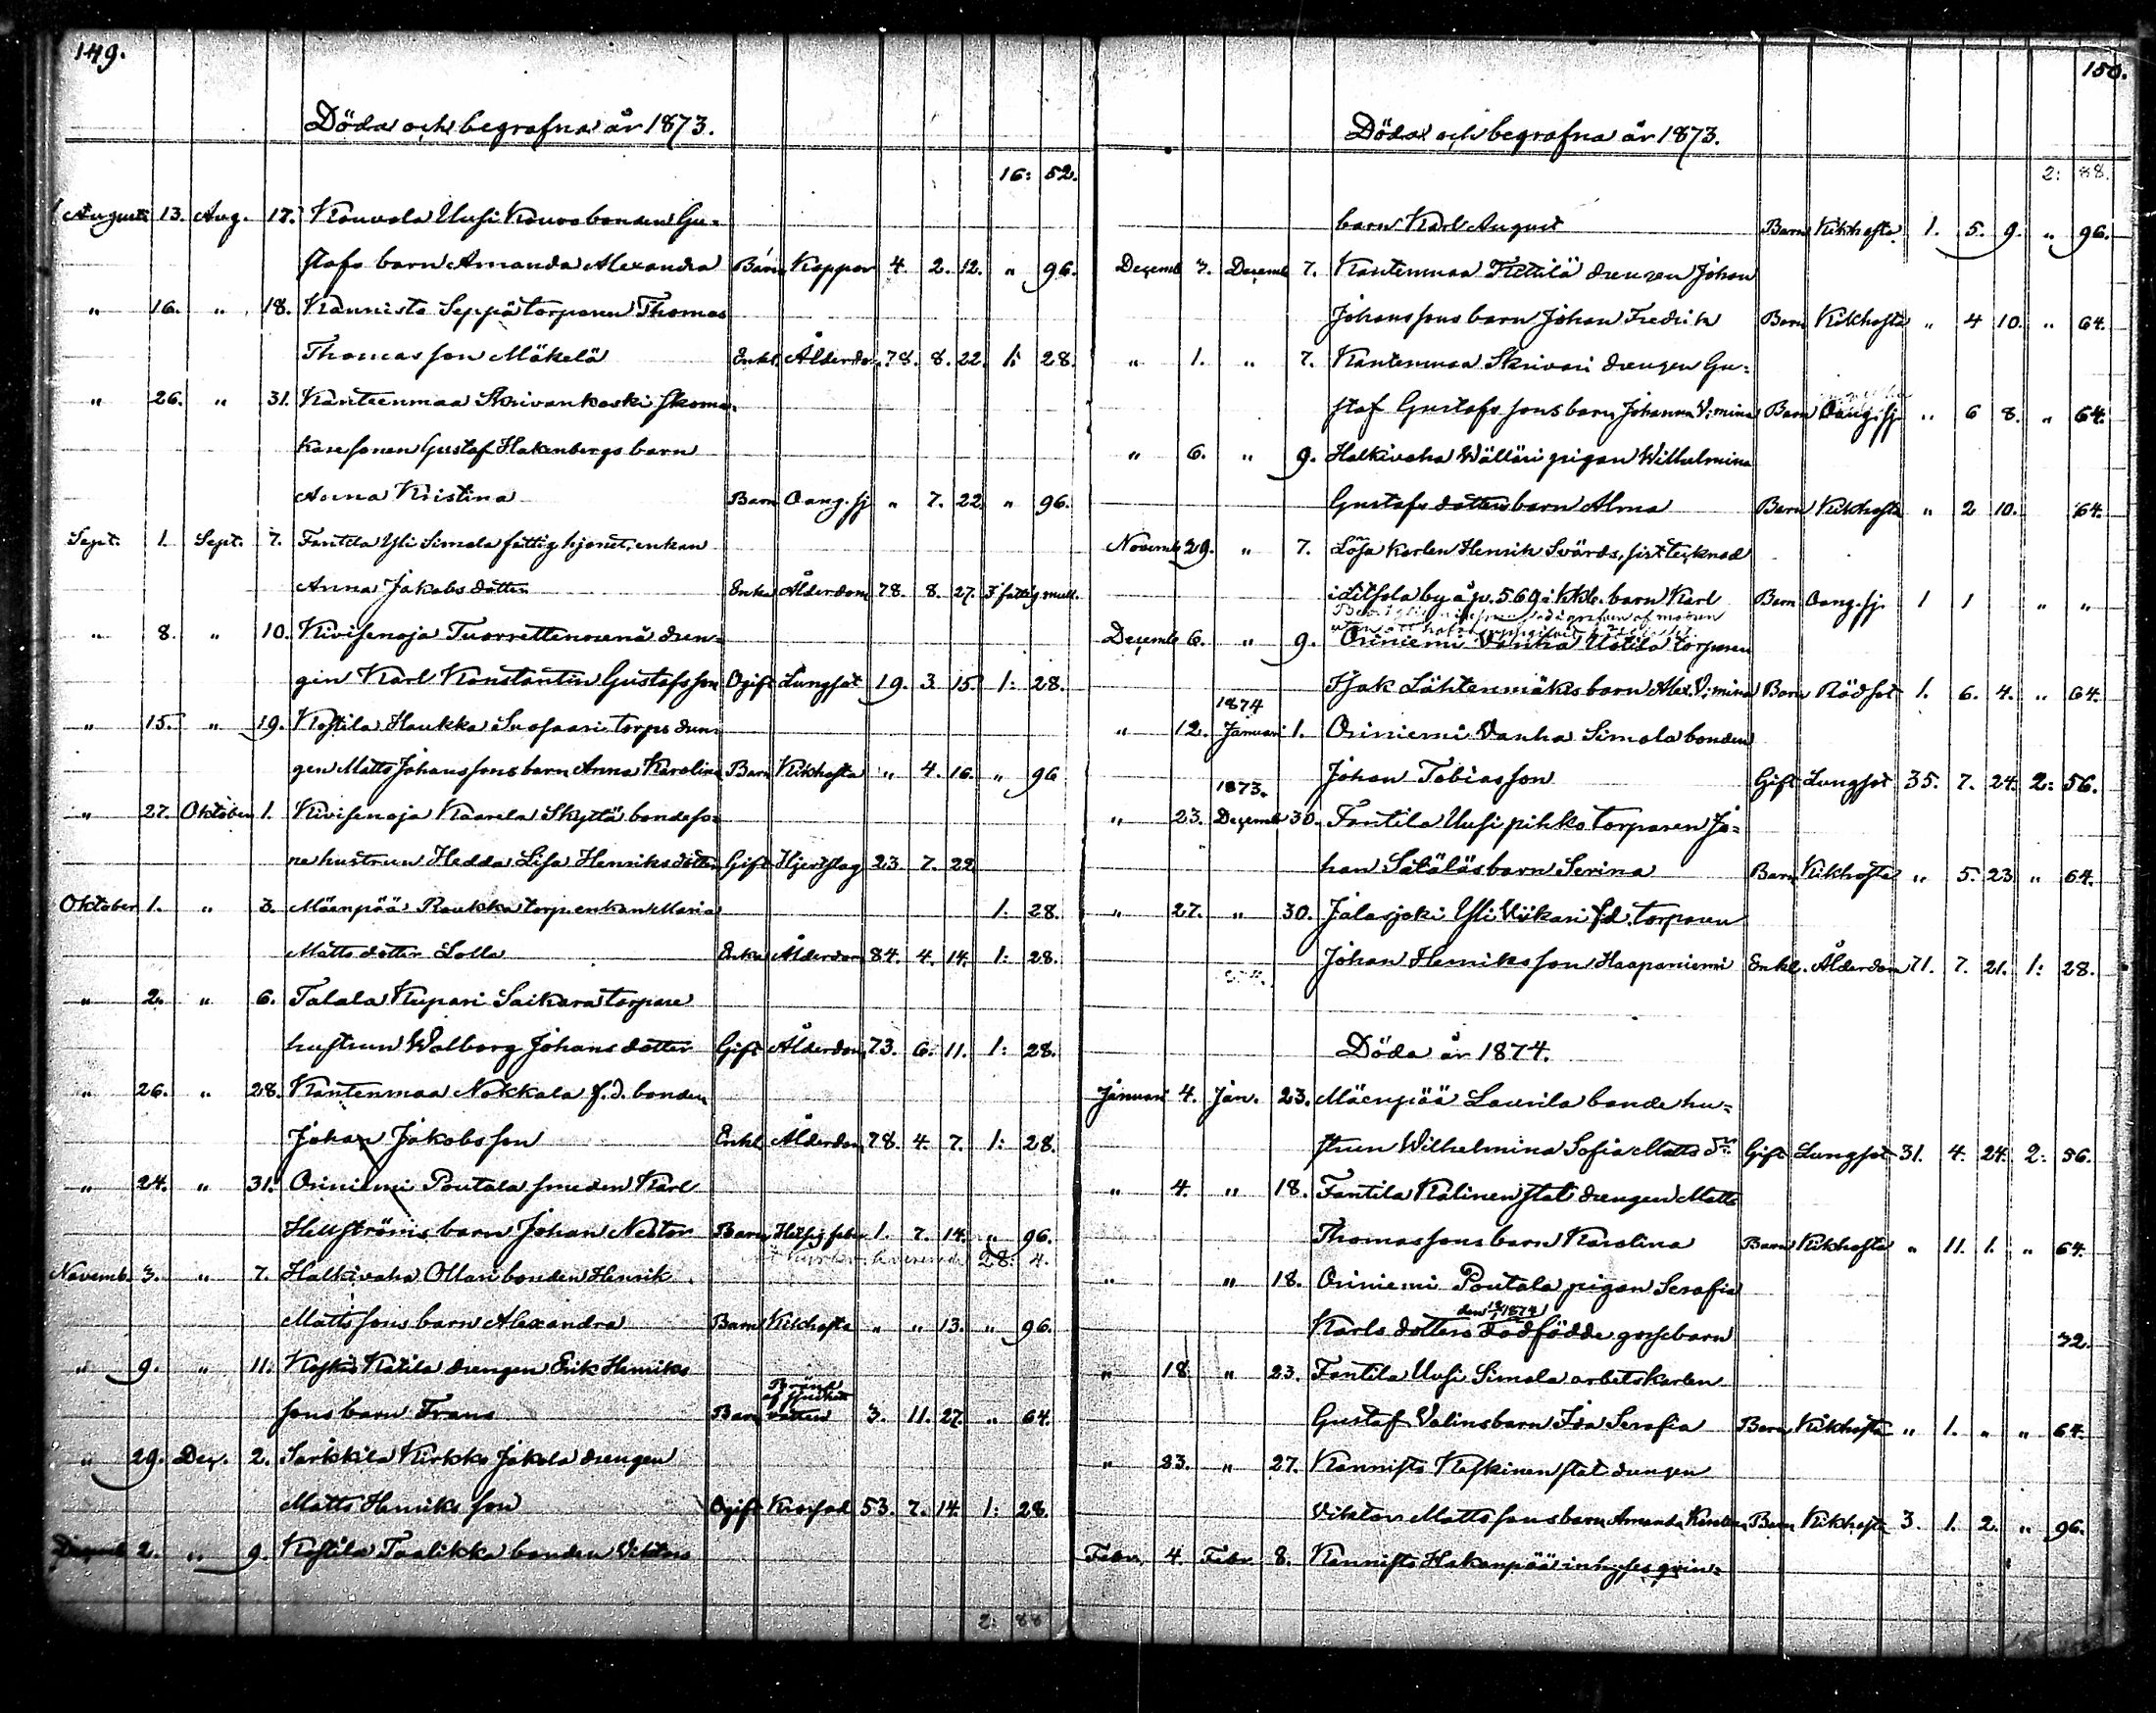 149.
Döda och begrafna år 1873.
16: 52.
Augusti 13. Aug. 17. Kouvola Uusi Kouvo bonden Gu-
stafs barn Amanda Alexandra Barn Koppor 4. 2. 12. " 96.
" 16. " 18. Kannisto Seppä torparen Thomas
Thomasson Mäkelä Enkl. Ålderdom 78. 8. 22. 1: 28.
" 26. " 31. Kanteenmaa Skrivankoski skoma-
karesonen Gustaf Hakenbergs barn
Anna Kristina Barn Oang. sj. " 7. 22. " 96.
Sept. 1. Sept. 7. Fantila Yli Simola fattighjonet, enkan
Anna Jakobsdotter Enka Ålderdom 78. 8. 27. I fattig mull.
" 8. " 10. Kivisenoja drän-
gen Karl Konstantin Gustafsson Ogift Lungsot 19. 3. 15. 1: 28.
" 15. " 19. Kostila Haukka Suosaari torps drän-
gen Matts Johanssons barn Anna Karolina Barn Kikhosta " 4. 16. " 96
" 27. Oktober 1. Kivisenoja Kaarela Skyttä bondeso-
nehustrun Hedda Lisa Henriksdotter Gift Hjertslag 23. 7. 22
Oktober 1. " 3. Mäenpää Raukka torp.enkan Maria 1: 28.
Mattsdotter Lolla Enka Ålderdom 84. 4. 14. 1: 28.
" 2. " 6. Talala Kupari Saikara torpare
hustrun Walborg Johansdotter Gift Ålderdom 73. 6. 11. 1: 28.
" 26. " 28. Kantenmaa Nokkala f.d. bonden
Johan Jakobsson Enkl. Ålderdom 78. 4. 7. 1: 28.
" 24. " 31. Oriniemi Poutala smeden Karl
Hellströms barn Johan Nestor Barn Hetsig feber 1. 7. 14. " 96.
28: 4.
Novemb. 3. " 7. Halkivaha Ollari bonden Henrik
Mattssons barn Alexandra Barn Kikhosta " " 13. " 96.
" 9. " 11. Koskis Katila drengen Erik Henriks
Bränd
af sjudhett
sons barn Frans Barn vatten 3. 11. 27. " 64.
" 29. Dec. 2. Sarkkila Kirkko Jakola drengen
Matts Henriksson Ogift 53. 7. 14. 1: 28.
Decemb. 2. " 9. Kostila Taalikka bonden Viktors
2: 88
150.
Döda och begrafna år 1873.
2: 88.
barn Karl August Barn Kikhosta 1. 5. 9. " 96.
Decemb. 3. Decemb. 7. Kantenmaa drengen Johan
Johanssons barn Johan Fredrik Barn Kikhosta " 4 10. " 64.
" 1. " 7. Kantenmaa Skrivari drengen Gu-
staf Gustafssons barn Johanna V:mina Barn Oang. sj. " 6 8. " 64.
" 6. " 9. Halkivaha Wälläri pigan Wilhelmina
Gustafsdotters barn Alma Barn Kikhosta " 2 10. 64.
Novemb. 29. " 7. Lösa karlen Henrik Svärds, sist tecknad
by å p. 569 i KKb. barn Karl Barn Oang. sj. 1 1 " "
Decemb. 6. " 9. Oriniemi Vanha Uotila torparen
Isak Lähtenmäkis barn Alex. V:mina Barn Rödsot 1. 6. 4. " 64.
1874
" 12. Januari 1. Oriniemi Vanha Simola bonden
Johan Tobiasson Gift Lungsot 35. 7. 24. 2: 56.
1873.
" 23. Decemb. 30. Fantila Uusipihko torparen Jo-
han Satäläs barn Serina Barn Kikhosta " 5. 23 " 64.
" 27. " 30. Jalasjoki Yli Viikari f.d. torparen
Johan Henriksson Haapaniemi Enkl. Ålderdom 71. 7. 21. 1: 28.
Döda år 1874.
Januari 4. Jan. 23. Mäenpää Laurila bondehu-
strun Wilhelmina Sofia Matts dr. Gift Lungsot 31. 4. 24. 2: 56.
" 4. " 18. Fantila Kalinen stat drengen Matts
Thomassons barn Karolina Barn Kikhosta " 11. 1. " 64.
" " 18. Oriniemi Poutala pigan Serafia
den 18/1 1874
Karlsdotters dödfödde gossebarn 32.
" 18 " 23. Fantila Uusi Simola arbetskarlen
Gustaf Valins barn Ida Serafia Barn Kikhosta " 1. " " 64.
" 23. " 27. Kannisto Keskinen stat drengen
Viktor Mattssons barn Amanda Karolina Barn Kikhosta 3. 1. 2. " 96.
Febr. 4. Febr. 8. Kannisto Hakanpää inhyses qvin-